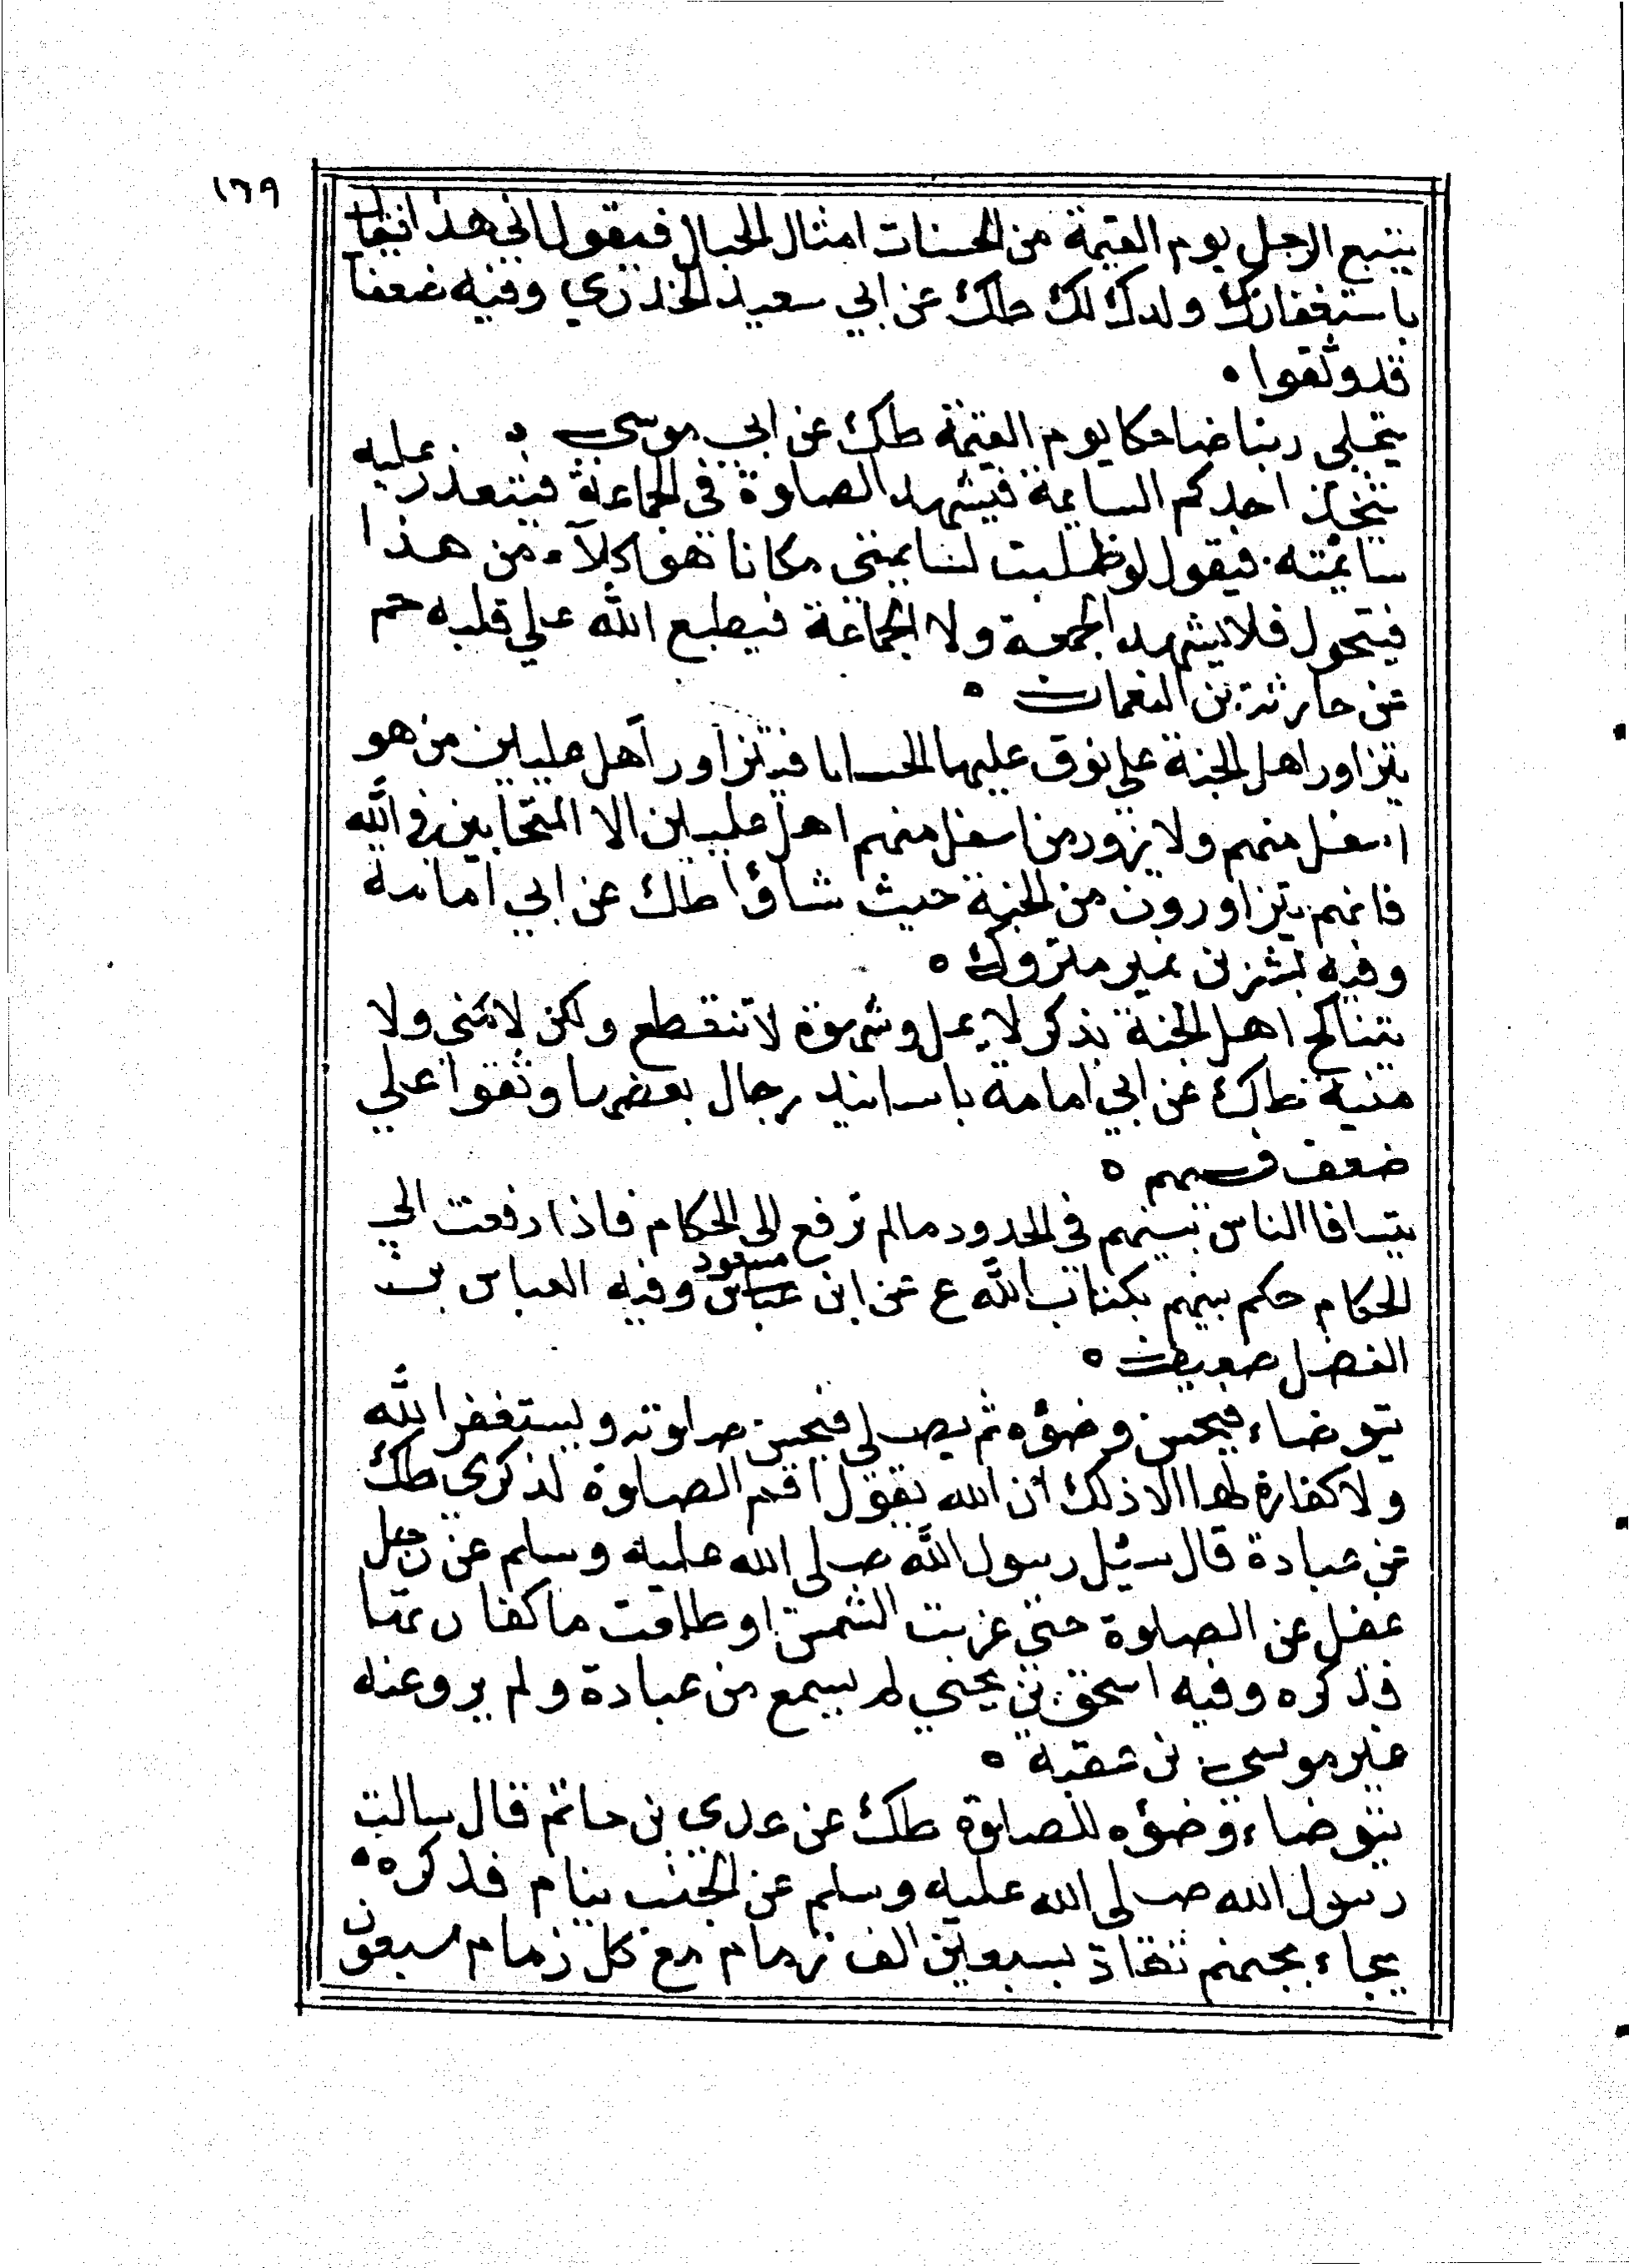 ١٦٩
يتبع الرجل يوم القيمة من الحسنات امثال الجبال فيقول اني هذا فيقال
باستغفارك ولدك لك طك عن ابي سعيد الخدري وفيه ضعفا
قد وثقوا ه
يتجلى ربنا ضاحكا يوم القيمة طك عن ابي موسى ه
يتخذ احدكم السايمة فيشهد الصلوة في الجماعة فيتعذر عليه
سايمته فيقول لو طلبت لسايمتي مكانا هو اكلاء من هذا
فيتحول فلا يشهد الجمعة ولا الجماعة فيطبع الله علي قلبه حم
عن حارثة بن النعمان ه
يتزاور اهل الجنة علي نوق عليها الحسايا فيتزاور اهل عليين من هو
اسفل منهم ولا يزور من اسفل منهم اهل عليين الا المتحابين في الله
فانهم يتزاورون من الجنة حيث شاؤا طك عن ابي امامة
وفيه بشر بن نمير متروك ه
يتناكح اهل الجنة بذكر لا يمل وشهوة لا تنقطع ولكن لا مني ولا
منية طك عن ابي امامة باسانيد رجال بعضها وثقوا علي
ضعف فيهم ه
يتسافا الناس بينهم في الحدود مالم ترفع الى الحكام فاذا رفعت الي
الحكام حكم بينهم بكتاب الله ع عن ابن عباس مسعود وفيه العباس بن
الفضل ضعيف ه
يتوضاء فيحسن وضؤه ثم يصلي فيحسن صلوته ويستغفر الله
ولا كفارة لها الا ذلك ان الله يقول اقم الصلوة لذكري طك
عن عبادة قال سئل رسول الله صلى الله عليه وسلم عن رجل
غفل عن الصلوة حتي غربت الشمس او طلعت ما كفارتها
فذكره وفيه اسحق بن يحيي لم يسمع من عبادة ولم يرو عنه
غير موسى بن عقبة ه
يتوضاء وضؤه للصلوة طك عن عدي بن حاتم قال سالت
رسول الله صلى الله عليه وسلم عن الجنب ينام فذكره ه
يجاء بجهنم تقاد بسبعين الف زمام مع كل زمام سبعون